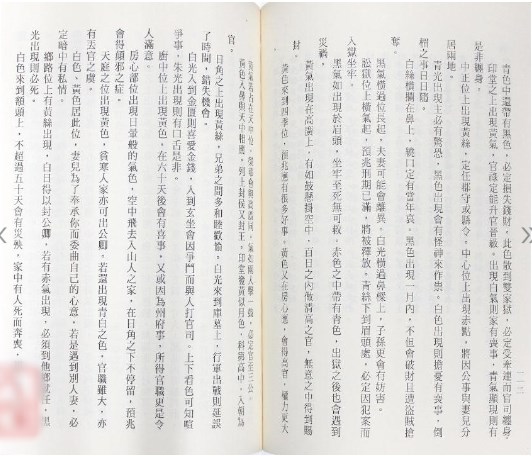 青色中還帶有黑色，必定損失錢財，此色散到雙家獄，必定受牽連而官司纏身。
印堂之上出現黃氣，官員定能升官晉級。出現白氣則家有喪事，青氣顯現則有
是非纏身。
中正位上出現黃絲，定任郡守或縣令。中心位上出現赤點，將因公事與妻兒分
居兩地。
青光出現主必有驚恐，黑色出現會有怪神來作祟，白色出現則擔憂有喪事，倒
楣之事日日隨。
白絲橫攔在鼻上，饒定有當年哀。黑色出現一月內，不但會破財且遭盜賊搶
奪。
黑氣橫過位長起，夫妻可能會離異。白光橫過鼻樑上，子孫更會有妨害。
訟獄位上橫氣起，預兆刑期已滿，將被釋放，青絲下到眉頭處，必定因犯案而
入獄坐牢。
黑氣如出現於眉頭，坐牢至死無可救。赤色之中帶有青色，出獄之後也會遇到
災禍。
黃氣出現在高廣上，有如鼓懸掛空中，百日之內做清高之官，無意之中得到賜
封。
黃色來到四季位，預兆應有很多好事。黃色又在房心應，會得高官，權力更大
官。
日角之上出現黃絲，兄弟之間多和睦歡愉，白光來到庫墓上，行軍出戰則延誤
了時間，錯失機會。
白光入到金匱則喜愛金錢，入到玄坐會因爭鬥而與人打官司。上下看色可知喧
爭事，朱光出現則有口舌是非。
廚中位上出現黃色，在六十天後會有喜事，又或因為州府事，所得官職更是令
人滿意。
房心部位出現日暈般的氣色，空中飛去入山人之家，在日角之下不停留，預兆
會得顛邪之症。
天庭之位出現黃色，貧寒人家亦可出公卿，若還出現青白之色，官職雖大，亦
有丟官之虞。
白色、黃色居此位，妻兒為了奉承你而委曲自己的心意，若是遇到別人妻，必
定暗中有私情。
鄉路位上有黃絲出現，白日得以封公卿，若有赤氣出現，必須到他鄉赴任，出
光出現則必死。
白色來到額頭上，不超過五十天會有災殃，家中有人死而奔喪，